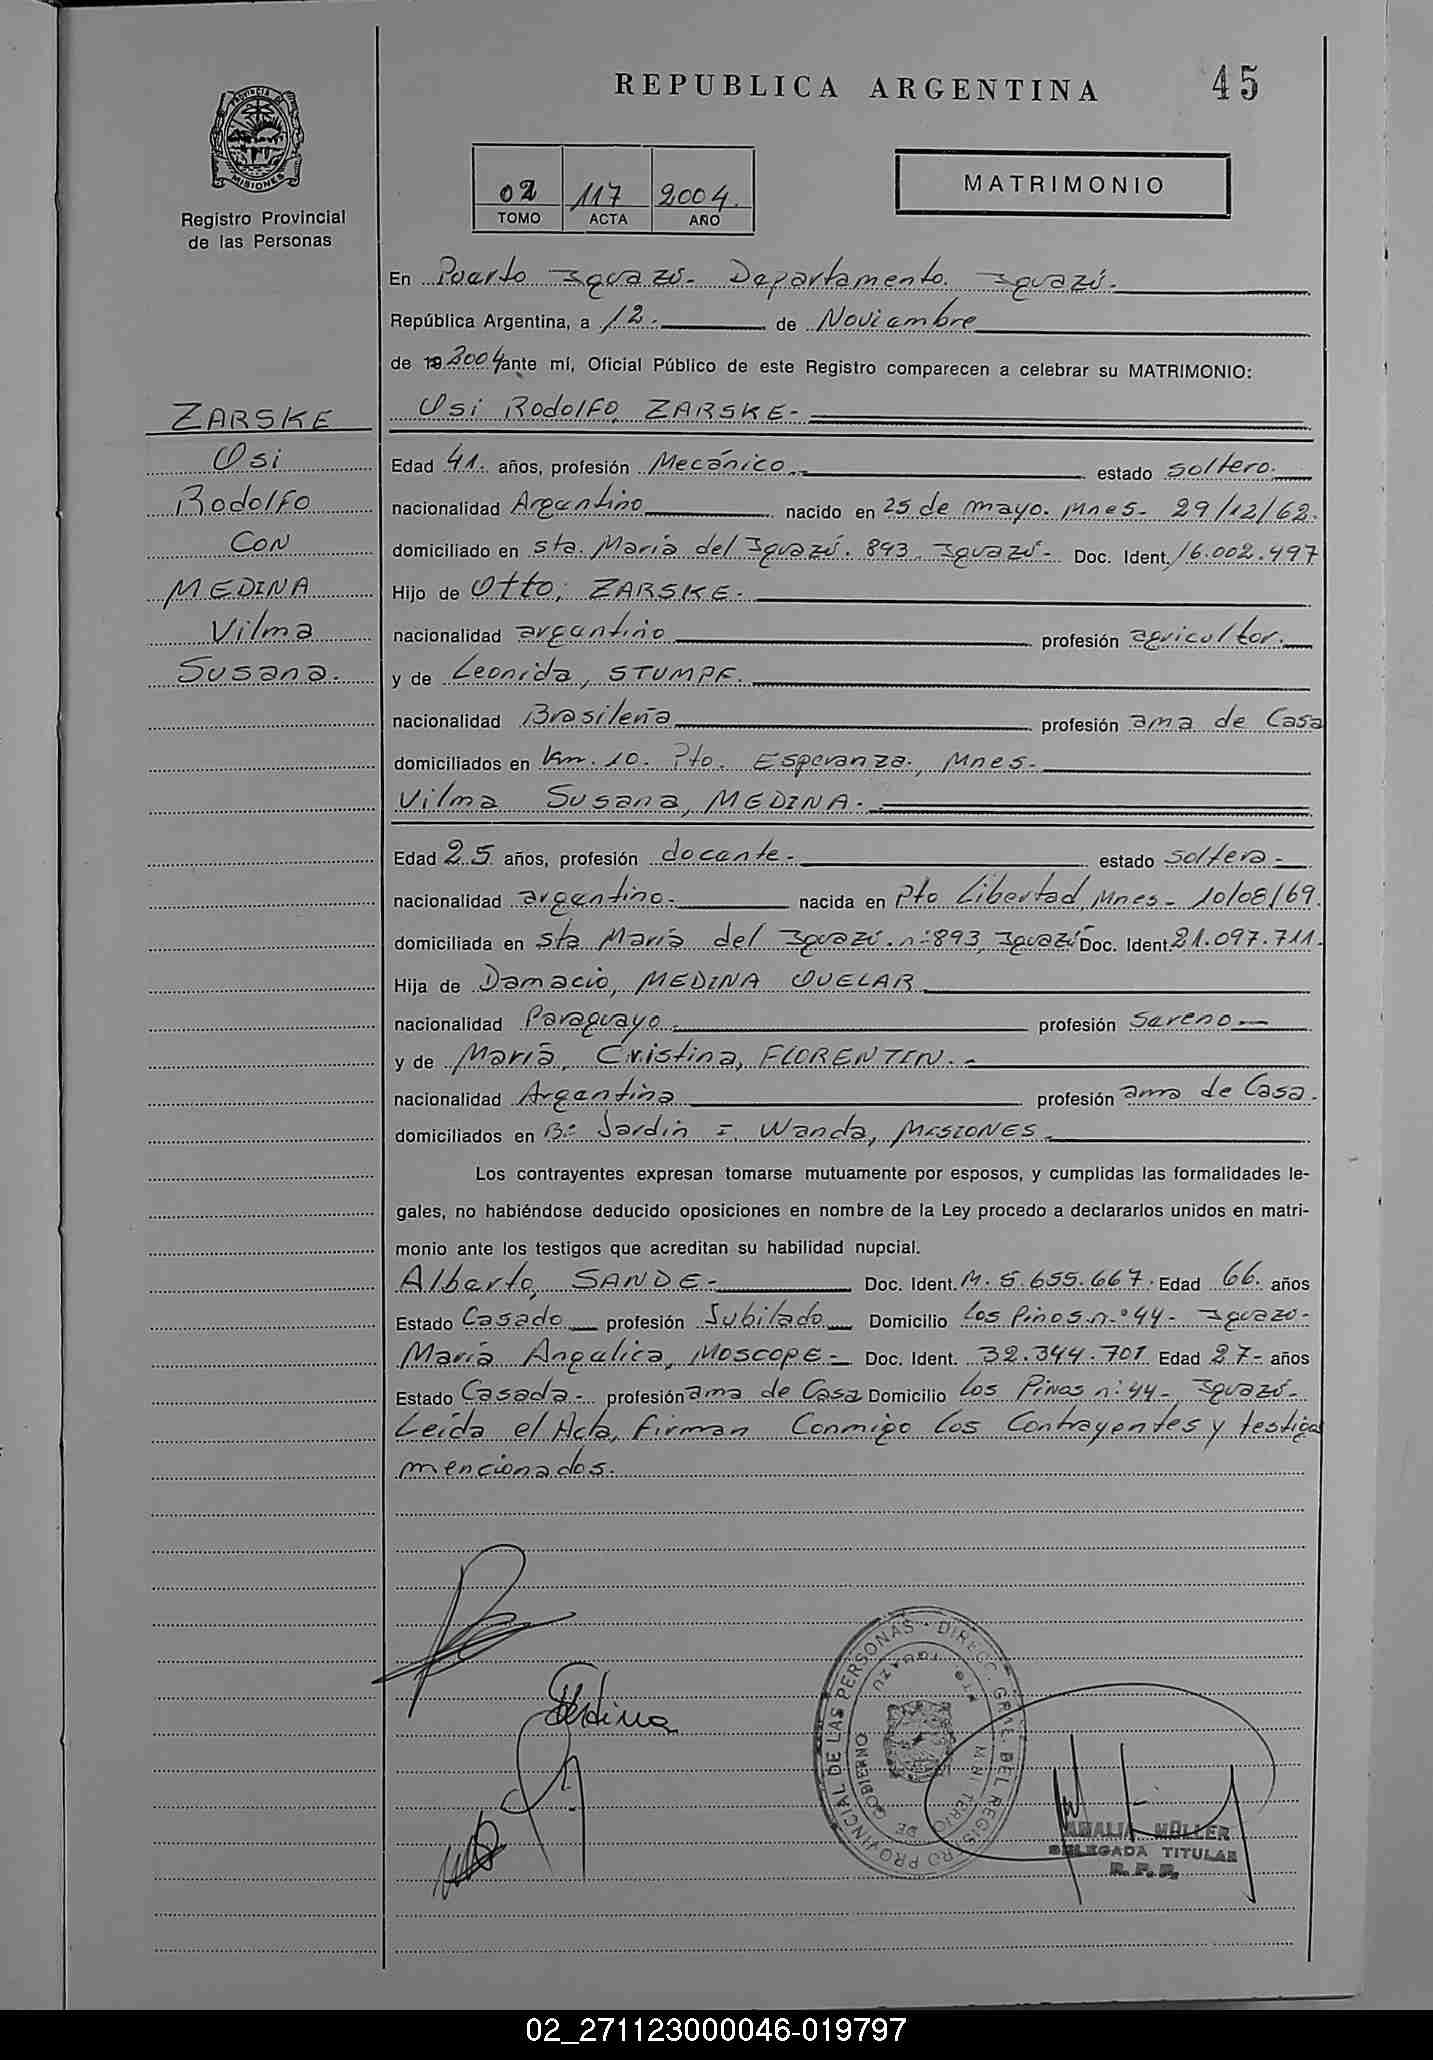 REPUBLICA ARGENTINA
45
PROVINCIA DE
MISIONES
Registro Provincial
de las Personas
02 117 2004.
TOMO ACTA AÑO
MATRIMONIO
En Puerto Iguazú- Departamento. Iguazú.
República Argentina, a 12. de Noviembre
de 19 2004 ante mí, Oficial Público de este Registro comparecen a celebrar su MATRIMONIO:
ZARSKE
Osi
Rodolfo
CON
MEDINA
Vilma
Susana.
Osi Rodolfo, ZARSKE-
Edad 41. años, profesión Mecánico. estado soltero.
nacionalidad Argentino nacido en 25 de mayo. Mnes- 29/12/62.
domiciliado en sta. María del Iguazú. 893. Iguazú- Doc. Ident. 16.002.497
Hijo de Otto, ZARSKE-
nacionalidad argentino profesión agricultor.
y de Leonida, STUMPF.
nacionalidad Brasileña profesión ama de Casa
domiciliados en Km. 10. Pto. Esperanza., Mnes-
Vilma Susana, MEDINA.
Edad 25 años, profesión docente- estado soltera-
nacionalidad argentino- nacida en Pto Libertad, Mnes- 10/08/69.
domiciliada en Sta María del Iguazú. nº 893, Iguazú Doc. Ident. 21.097.711-
Hija de Damacio, MEDINA OVELAR
nacionalidad Paraguayo profesión Sereno-
y de María, Cristina, FLORENTIN.-
nacionalidad Argentina profesión ama de Casa.
domiciliados en Bº Jardín I. Wanda, MISIONES.
Los contrayentes expresan tomarse mutuamente por esposos, y cumplidas las formalidades le-
gales, no habiéndose deducido oposiciones en nombre de la Ley procedo a declararlos unidos en matri-
monio ante los testigos que acreditan su habilidad nupcial.
Alberto, SANDE- Doc. Ident. M. 5.655.667. Edad 66. años
Estado Casado profesión Jubilado Domicilio los Pinos n.º 44- Iguazú-
María Angelica, MOSCOPE- Doc. Ident. 32.344.701 Edad 27- años
Estado Casada- profesión ama de Casa Domicilio los Pinos nº 44- Iguazú-
Leída el Acta, firman Conmigo los Contrayentes y testigos
mencionados.
Medina
DIRECC. GRAL. DEL REGISTRO PROVINCIAL DE LAS PERSONAS
MINISTERIO DE GOBIERNO
PTO. IGUAZU
AMALIA MÜLLER
DELEGADA TITULAR
R. P. P.
02_271123000046-019797